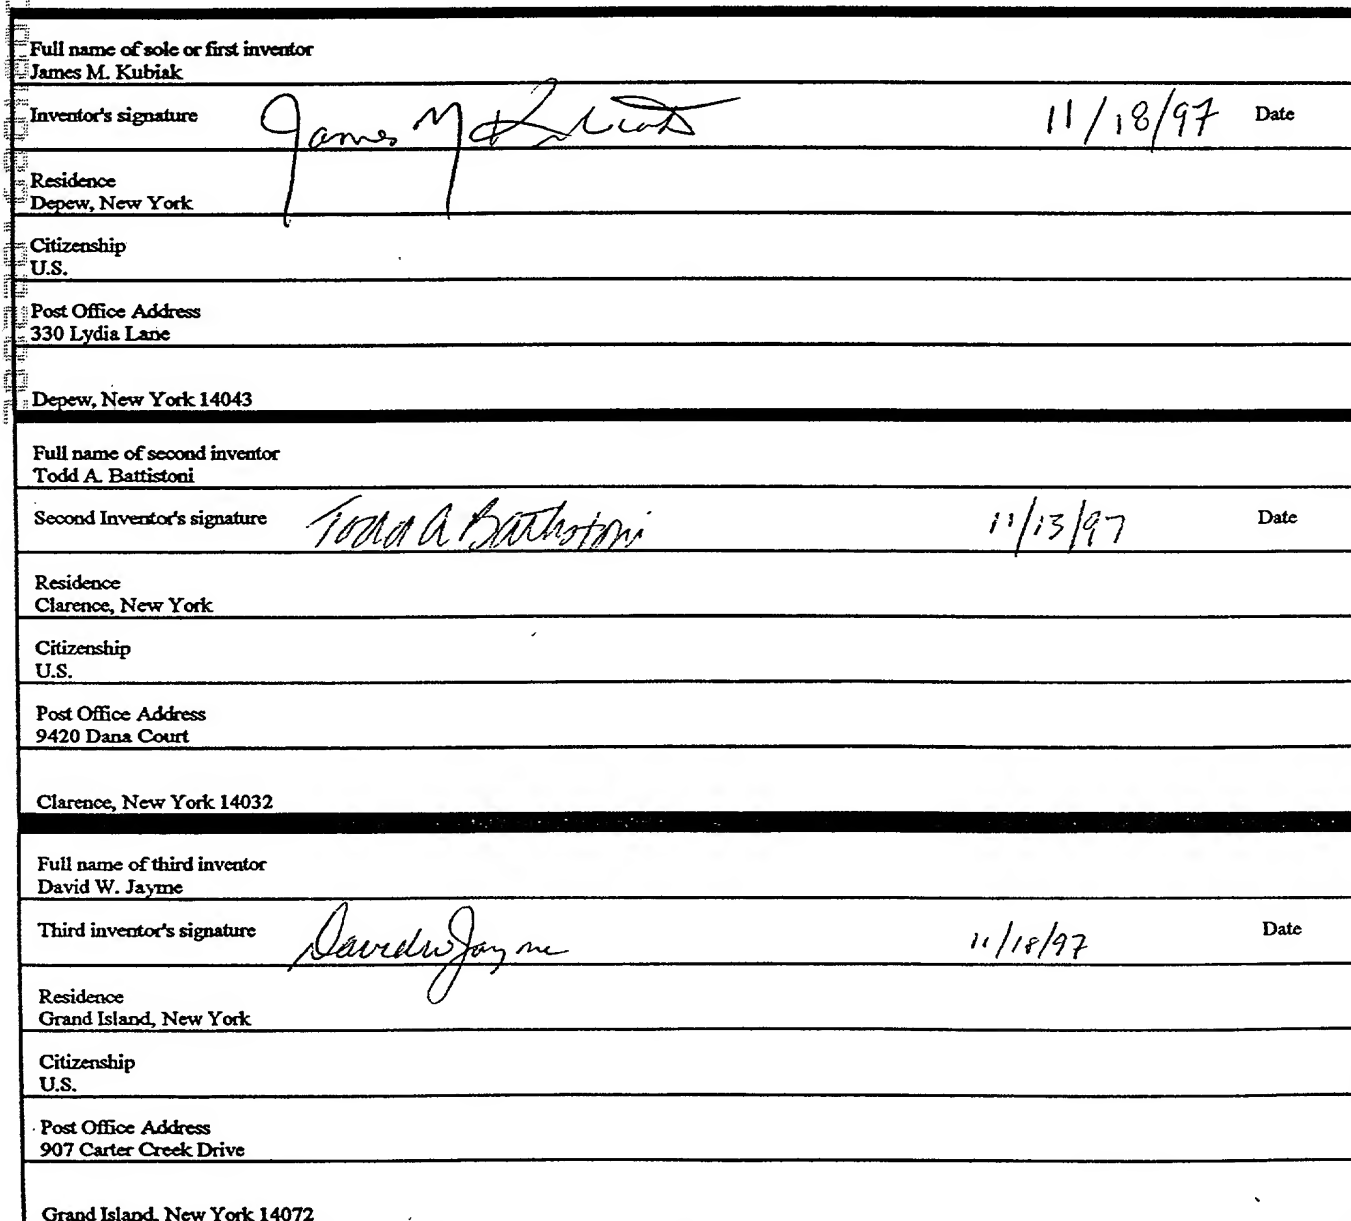 Full name of sole or first inventor
James M. Kubiak
Inventor's signature James M Kubiak 11/18/97 Date
Residence
Depew, New York
Citizenship
U.S.
Post Office Address
330 Lydia Lane
Depew, New York 14043
Full name of second inventor
Todd A. Battistoni
Second Inventor's signature Todd A Battistoni 11/13/97 Date
Residence
Clarence, New York
Citizenship
U.S.
Post Office Address
9420 Dana Court
Clarence, New York 14032
Full name of third inventor
David W. Jayme
Third inventor's signature David W Jayme 11/18/97 Date
Residence
Grand Island, New York
Citizenship
U.S.
Post Office Address
907 Carter Creek Drive
Grand Island, New York 14072